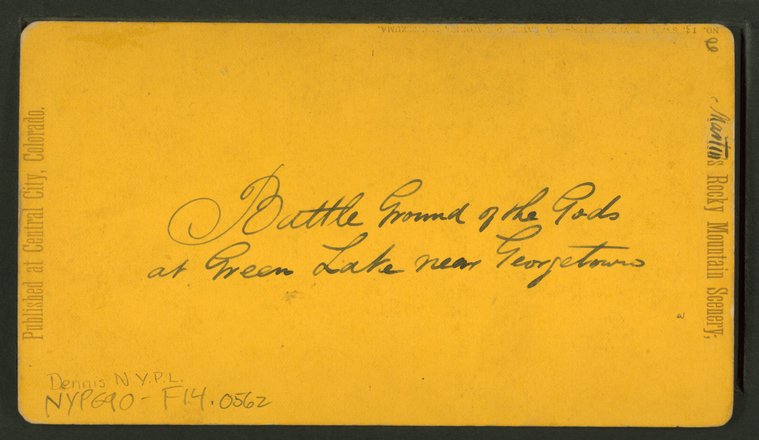 Battle Ground of the Gods
at Green Lake near Georgetown
Published at Central City, Colorado.
Martin's Rocky Mountain Scenery,
Dennis N.Y.P.L.
NYPG90-F14.0562